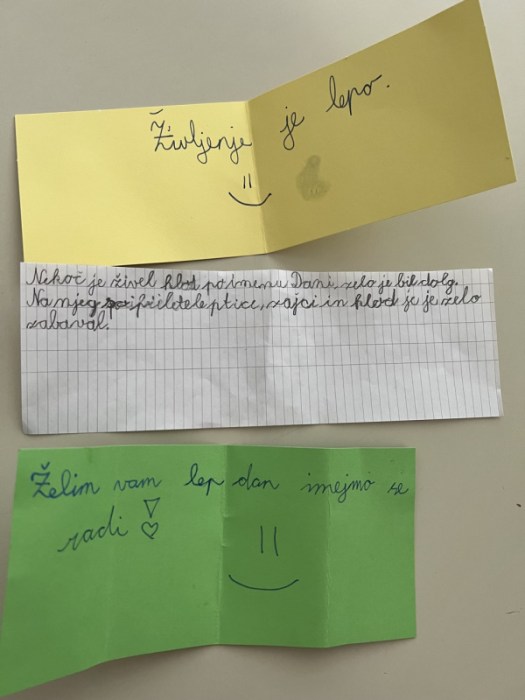 Življenje je lepo.
Nekoč je živel hlod po imenu Dani, zelo je bil dolg.
Na njeg priletele ptice, zajci in hlod je je zelo
zabaval.
Želim vam lep dan imejmo se
radi